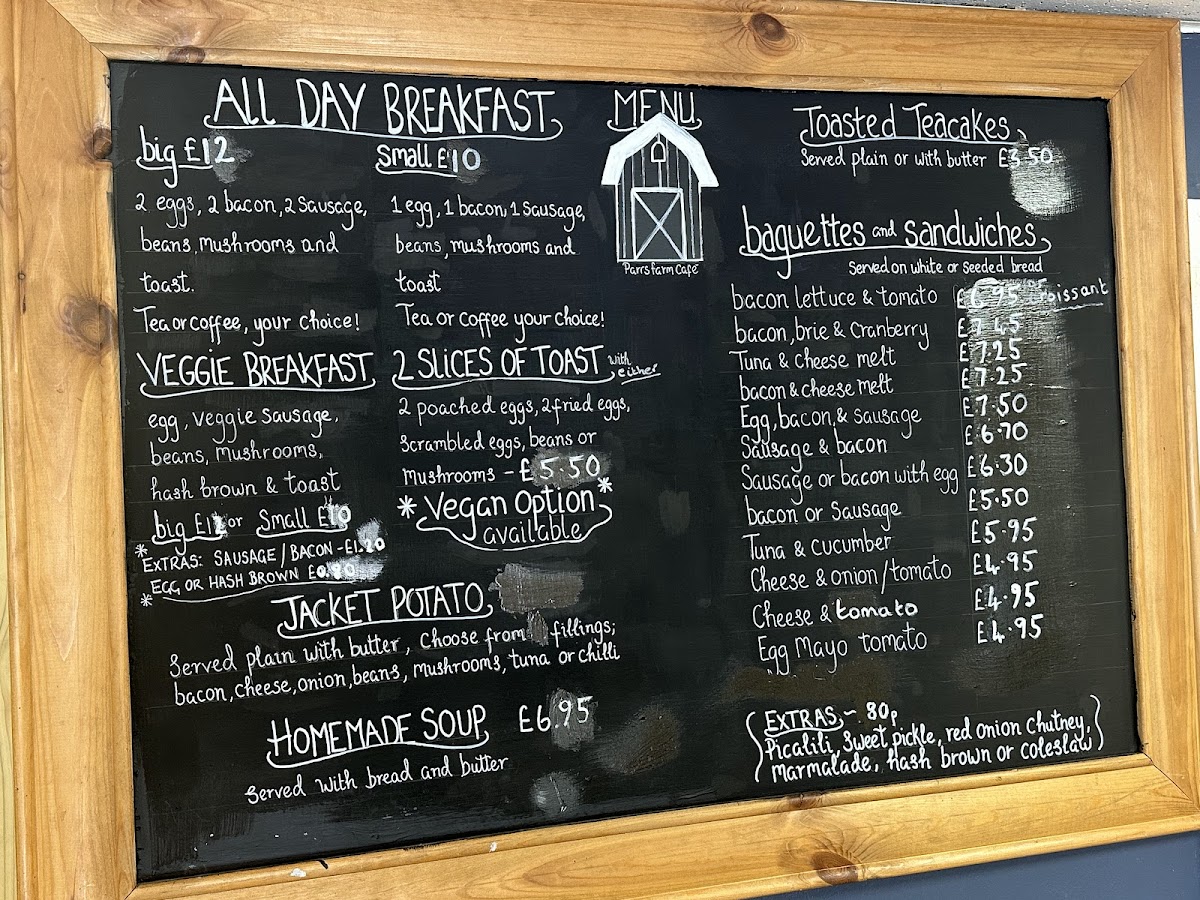 ALL DAY BREAKFAST
big £12
2 eggs, 2 bacon, 2 Sausage,
beans, mushrooms and
toast.
Tea or coffee, your choice!
Small £10
1 egg, 1 bacon, 1 Sausage,
beans, mushrooms and
toast
Tea or coffee your choice!
VEGGIE BREAKFAST
egg, veggie sausage,
beans, mushrooms,
hash brown & toast
big £12 or Small £10
* EXTRAS: SAUSAGE / BACON - £1.20
EGG OR HASH BROWN £0.80
*
2 SLICES OF TOAST with either
2 poached eggs, 2 fried eggs,
Scrambled eggs, beans or
Mushrooms - £5.50
* Vegan Option *
available
JACKET POTATO
Served plain with butter, Choose from fillings;
bacon, cheese, onion, beans, mushrooms, tuna or chilli
HOMEMADE SOUP £6.95
Served with bread and butter
MENU
Parrs farm Cafe
Toasted Teacakes
Served plain or with butter £3.50
baguettes and sandwiches
Served on white or seeded bread
bacon lettuce & tomato £6.95 croissant
bacon, brie & cranberry £7.45
Tuna & cheese melt £7.25
bacon & cheese melt £7.25
Egg, bacon, & sausage £7.50
Sausage & bacon £6.70
Sausage or bacon with egg £6.30
bacon or Sausage £5.50
Tuna & cucumber £5.95
Cheese & onion/tomato £4.95
Cheese & tomato £4.95
Egg Mayo tomato £4.95
EXTRAS - 80p
Picalili, Sweet pickle, red onion chutney,
marmalade, hash brown or coleslaw